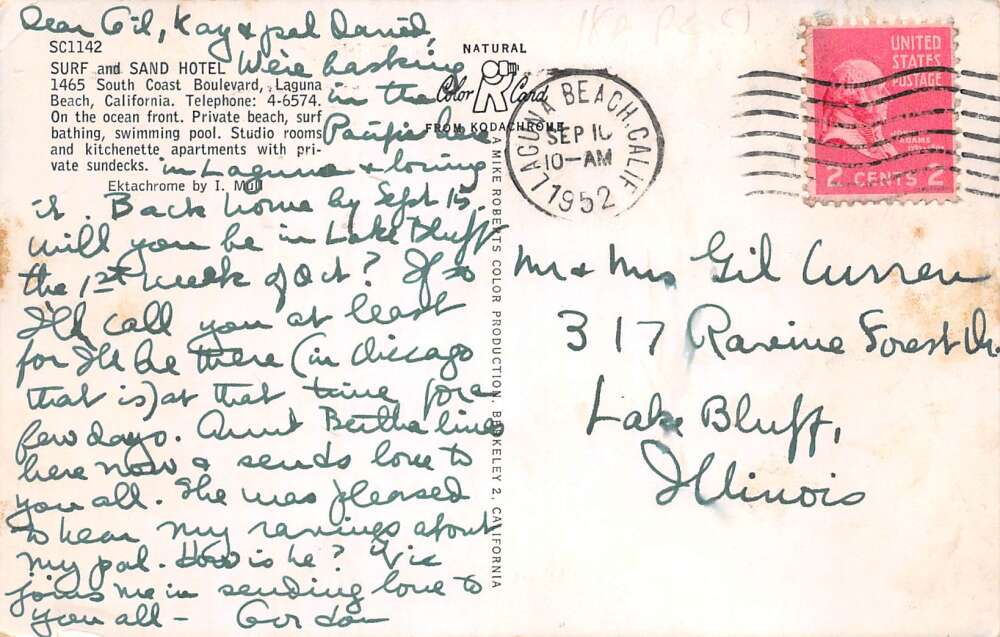 Dear Gil, Kay & pal David,
We're basking
in the
Pacific here
in Laguna & loving
it. Back home by Sept 15.
Will you be in Lake Bluff
the 1st week of Oct? If so
I'll call you at least
for I'll be there (in Chicago
that is) at that time for a
few days. Aunt Bertha lives
here now & sends love to
you all. She was pleased
to hear my ravings about
my pal. How is he? Vic
joins me in sending love to
you all -
SC1142
SURF and SAND HOTEL
1465 South Coast Boulevard, Laguna
Beach, California. Telephone: 4-6574.
On the ocean front. Private beach, surf
bathing, swimming pool. Studio rooms
and kitchenette apartments with pri-
vate sundecks.
Ektachrome by I. Mull
NATURAL
Color Card
FROM KODACHROME
A MIKE ROBERTS COLOR PRODUCTION, BERKELEY 2, CALIFORNIA
LAGUNA BEACH, CALIF.
SEP 10
10-AM
1952
UNITED
STATES
POSTAGE
ADAMS
2 CENTS 2
Mr & Mrs Gil Curren
317 Ravine Forest Dr.
Lake Bluff,
Illinois